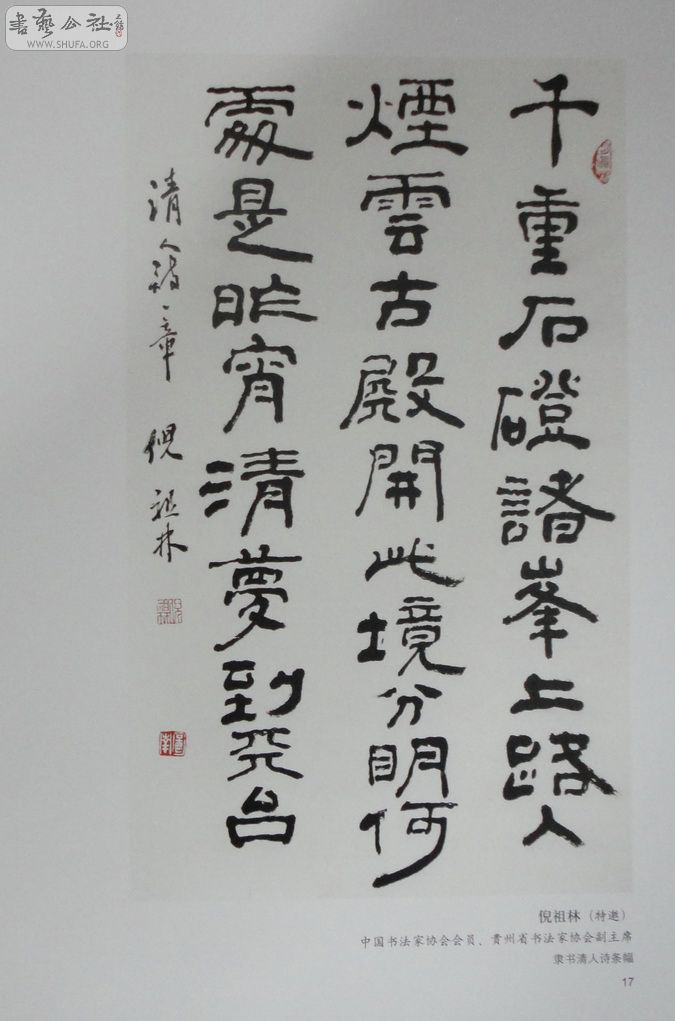 書藝公社
WWW.SHUFA.ORG
千重石磴諸峯上路人
煙雲古殿開此境分明何
處是昨宵清夢到天台
清人詩一章 倪祖林
倪祖林（特邀）
中国书法家协会会员、贵州省书法家协会副主席
隶书清人诗条幅
17